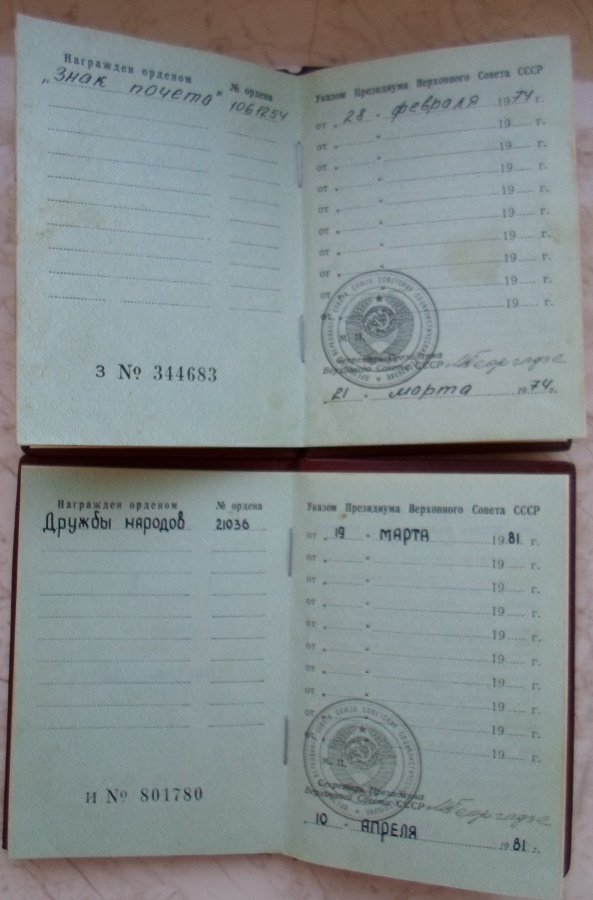 Награжден орденом
№ ордена
„Знак почета"
1061254
З № 344683
Указом Президиума Верховного Совета СССР
от „ 28 " февраля 1974 г.
от „ " 19 г.
от „ " 19 г.
от „ " 19 г.
от „ " 19 г.
от „ " 19 г.
от „ " 19 г.
от „ " 19 г.
от „ " 19 г.
" 19 г.
М. П.
Секретарь Президиума
Верховного Совета СССР
„ 21 " марта 1974 г.
Награжден орденом
№ ордена
Дружбы народов
21036
И № 801780
Указом Президиума Верховного Совета СССР
от „ 19 " МАРТА 1981 г.
от „ " 19 г.
от „ " 19 г.
от „ " 19 г.
от „ " 19 г.
от „ " 19 г.
от „ " 19 г.
от „ " 19 г.
от „ " 19 г.
" 19 г.
М. П.
Секретарь Президиума
Верховного Совета СССР
„ 10 " АПРЕЛЯ 1981 г.